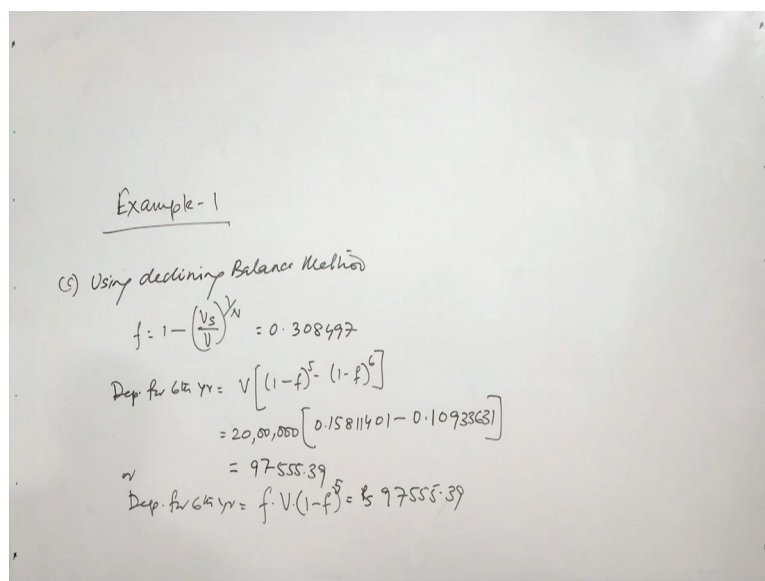 Example-1
(c) Using declining Balance Method
f = 1 - (Vs/V)^1/N = 0.308497
Dep. for 6th yr = V[(1-f)^5 - (1-f)^6]
= 20,00,000 [0.15811401 - 0.10933631]
= 97555.39
or
Dep. for 6th yr = f.V.(1-f)^5 = Rs 97555.39